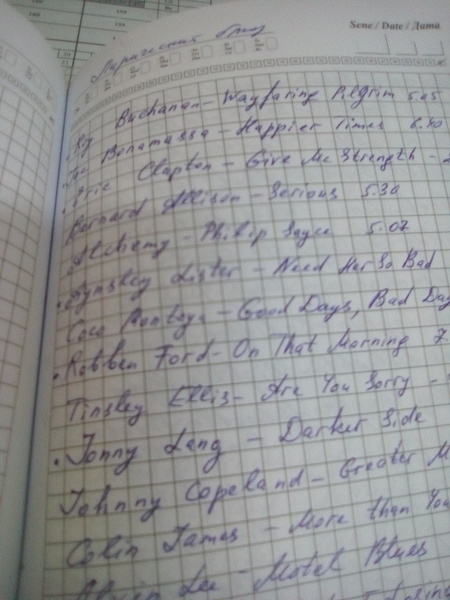 Sene / Date / Дата
Лирический блюз
Roy Buchanan - Wayfaring Pilgrim 5.45
Joe Bonamassa - Happier Times 6.40
Eric Clapton - Give Me Strength -
Bernard Allison - Serious 5.30
Alchemy - Philip Sayce 5.07
Aynsley Lister - Need Her So Bad
Coco Montoya - Good Days, Bad Day
Robben Ford - On That Morning 7.
Tinsley Ellis - Are You Sorry -
Jonny Lang - Darker Side
Johnny Copeland - Greater M
Colin James - More than You
Alvin Lee - Motel Blues